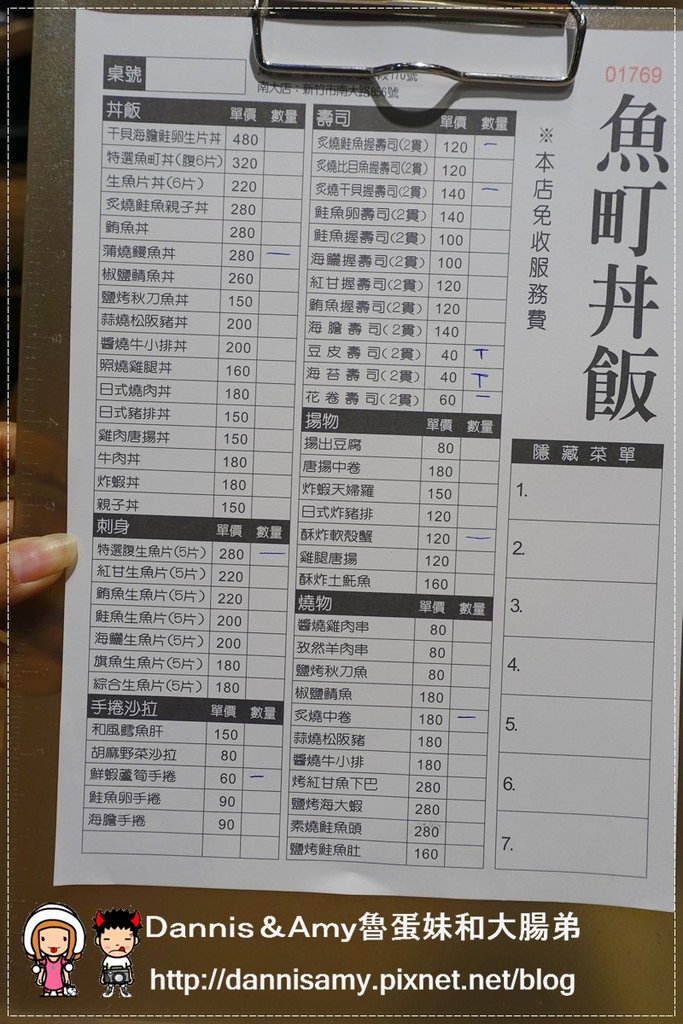 01769
魚町丼飯
※本店免收服務費
桌號
南大店：新竹市南大路856號
丼飯 單價 數量
干貝海膽鮭卵生片丼 480
特選魚町丼(腹6片) 320
生魚片丼(6片) 220
炙燒鮭魚親子丼 280
鮪魚丼 280
蒲燒鰻魚丼 280 一
椒鹽鯖魚丼 260
鹽烤秋刀魚丼 150
蒜燒松阪豬丼 200
醬燒牛小排丼 200
照燒雞腿丼 160
日式燒肉丼 180
日式豬排丼 150
雞肉唐揚丼 150
牛肉丼 180
炸蝦丼 180
親子丼 150
刺身 單價 數量
特選腹生魚片(5片) 280 一
紅甘生魚片(5片) 220
鮪魚生魚片(5片) 220
鮭魚生魚片(5片) 200
海鱺生魚片(5片) 200
旗魚生魚片(5片) 180
綜合生魚片(5片) 180
手捲沙拉 單價 數量
和風鱈魚肝 150
胡麻野菜沙拉 80
鮮蝦蘆筍手捲 60 一
鮭魚卵手捲 90
海膽手捲 90
壽司 單價 數量
炙燒鮭魚握壽司(2貫) 120 一
炙燒比目魚握壽司(2貫) 120
炙燒干貝握壽司(2貫) 140 一
鮭魚卵壽司(2貫) 140
鮭魚握壽司(2貫) 100
海鱺握壽司(2貫) 100
紅甘握壽司(2貫) 120
鮪魚握壽司(2貫) 120
海膽壽司(2貫) 140
豆皮壽司(2貫) 40 丅
海苔壽司(2貫) 40 丅
花卷壽司(2貫) 60 一
揚物 單價 數量
揚出豆腐 80
唐揚中卷 180
炸蝦天婦羅 150
日式炸豬排 120
酥炸軟殼蟹 120 一
雞腿唐揚 120
酥炸土魠魚 160
燒物 單價 數量
醬燒雞肉串 80
孜然羊肉串 80
鹽烤秋刀魚 80
椒鹽鯖魚 180
炙燒中卷 180 一
蒜燒松阪豬 180
醬燒牛小排 180
烤紅甘魚下巴 280
鹽烤海大蝦 280
素燒鮭魚頭 280
鹽烤鮭魚肚 160
隱藏菜單
1.
2.
3.
4.
5.
6.
7.
Dannis&Amy魯蛋妹和大腸弟
http://dannisamy.pixnet.net/blog